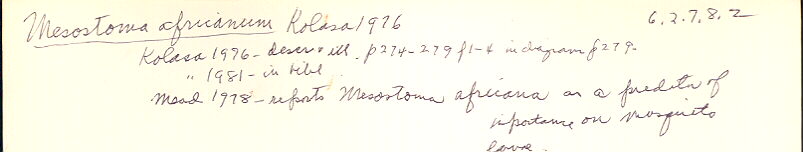 Mesostoma africanum Kolasa 1976 6.2.7.8.2
Kolasa 1976 - descr & ill. p274-279 f1-4 in diagram p279.
" 1981 - in bibl.
Mead 1978 - reports Mesostoma africana as a predator of
importance on mosquito
larvae.